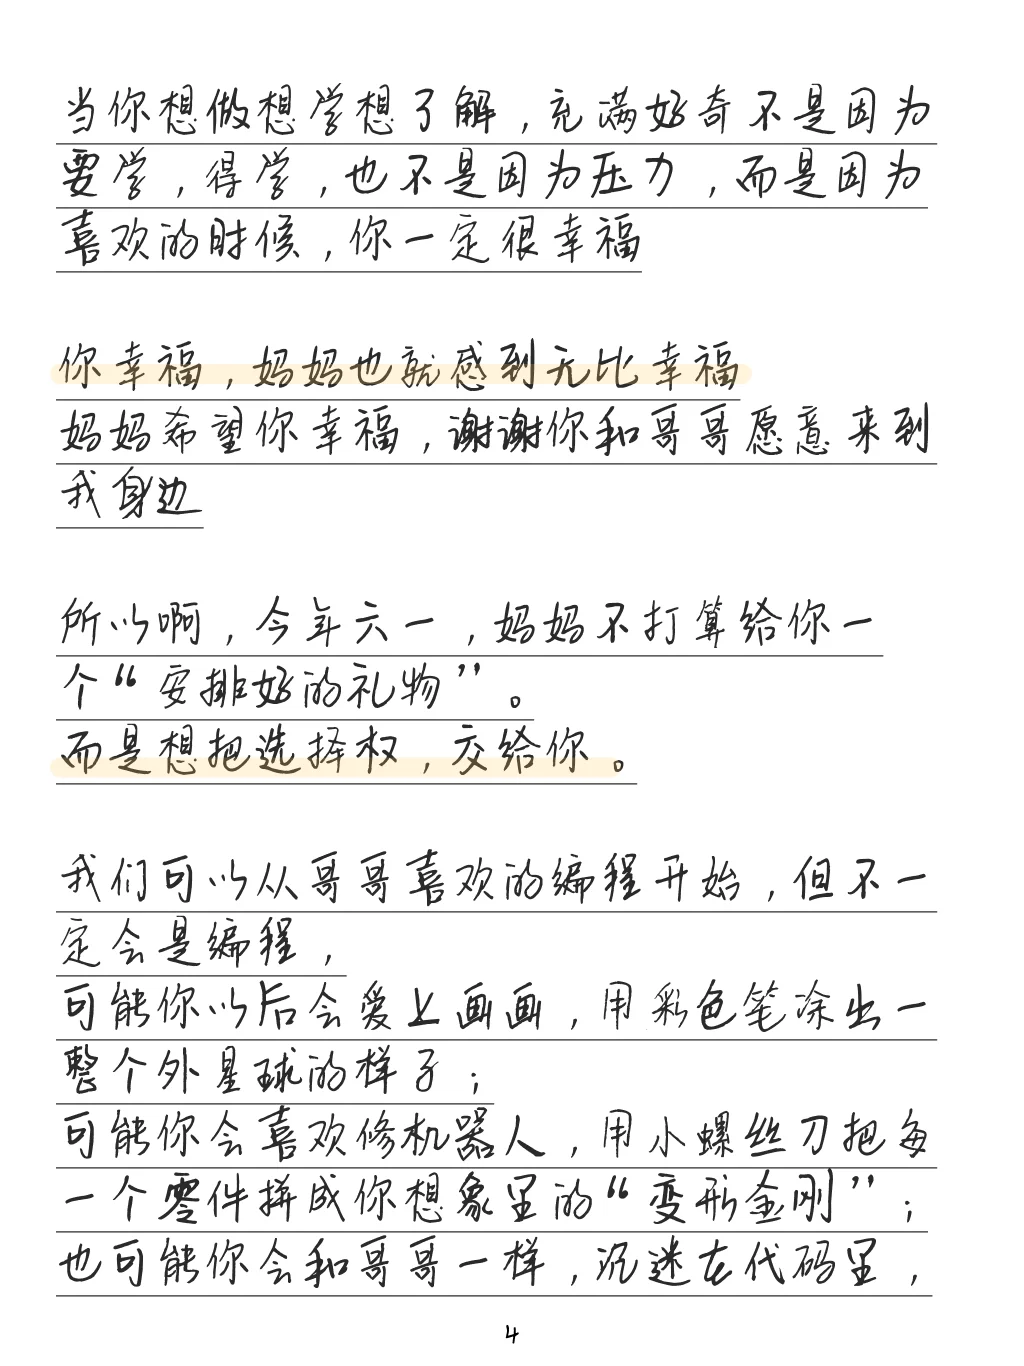 当你想做想学想了解，充满好奇不是因为
要学，得学，也不是因为压力，而是因为
喜欢的时候，你一定很幸福
你幸福，妈妈也就感到无比幸福
妈妈希望你幸福，谢谢你和哥哥愿意来到
我身边
所以啊，今年六一，妈妈不打算给你一
个“安排好的礼物”。
而是想把选择权，交给你。
我们可以从哥哥喜欢的编程开始，但不一
定会是编程，
可能你以后会爱上画画，用彩色笔涂出一
整个外星球的样子；
可能你会喜欢修机器人，用小螺丝刀把每
一个零件拼成你想象里的“变形金刚”；
也可能你会和哥哥一样，沉迷在代码里，
4